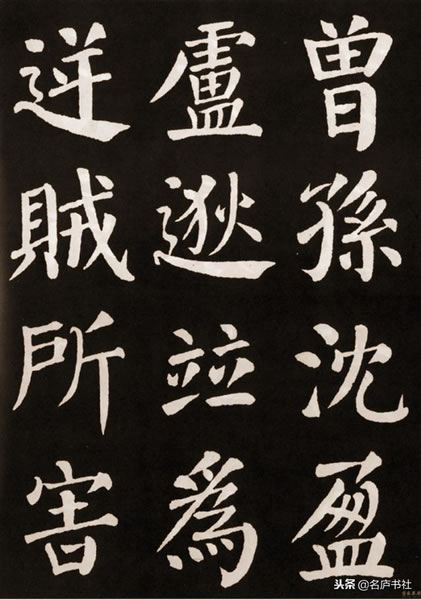 曾孫沈盈
盧逖竝為
逆賊所害
头条 @名庐书社